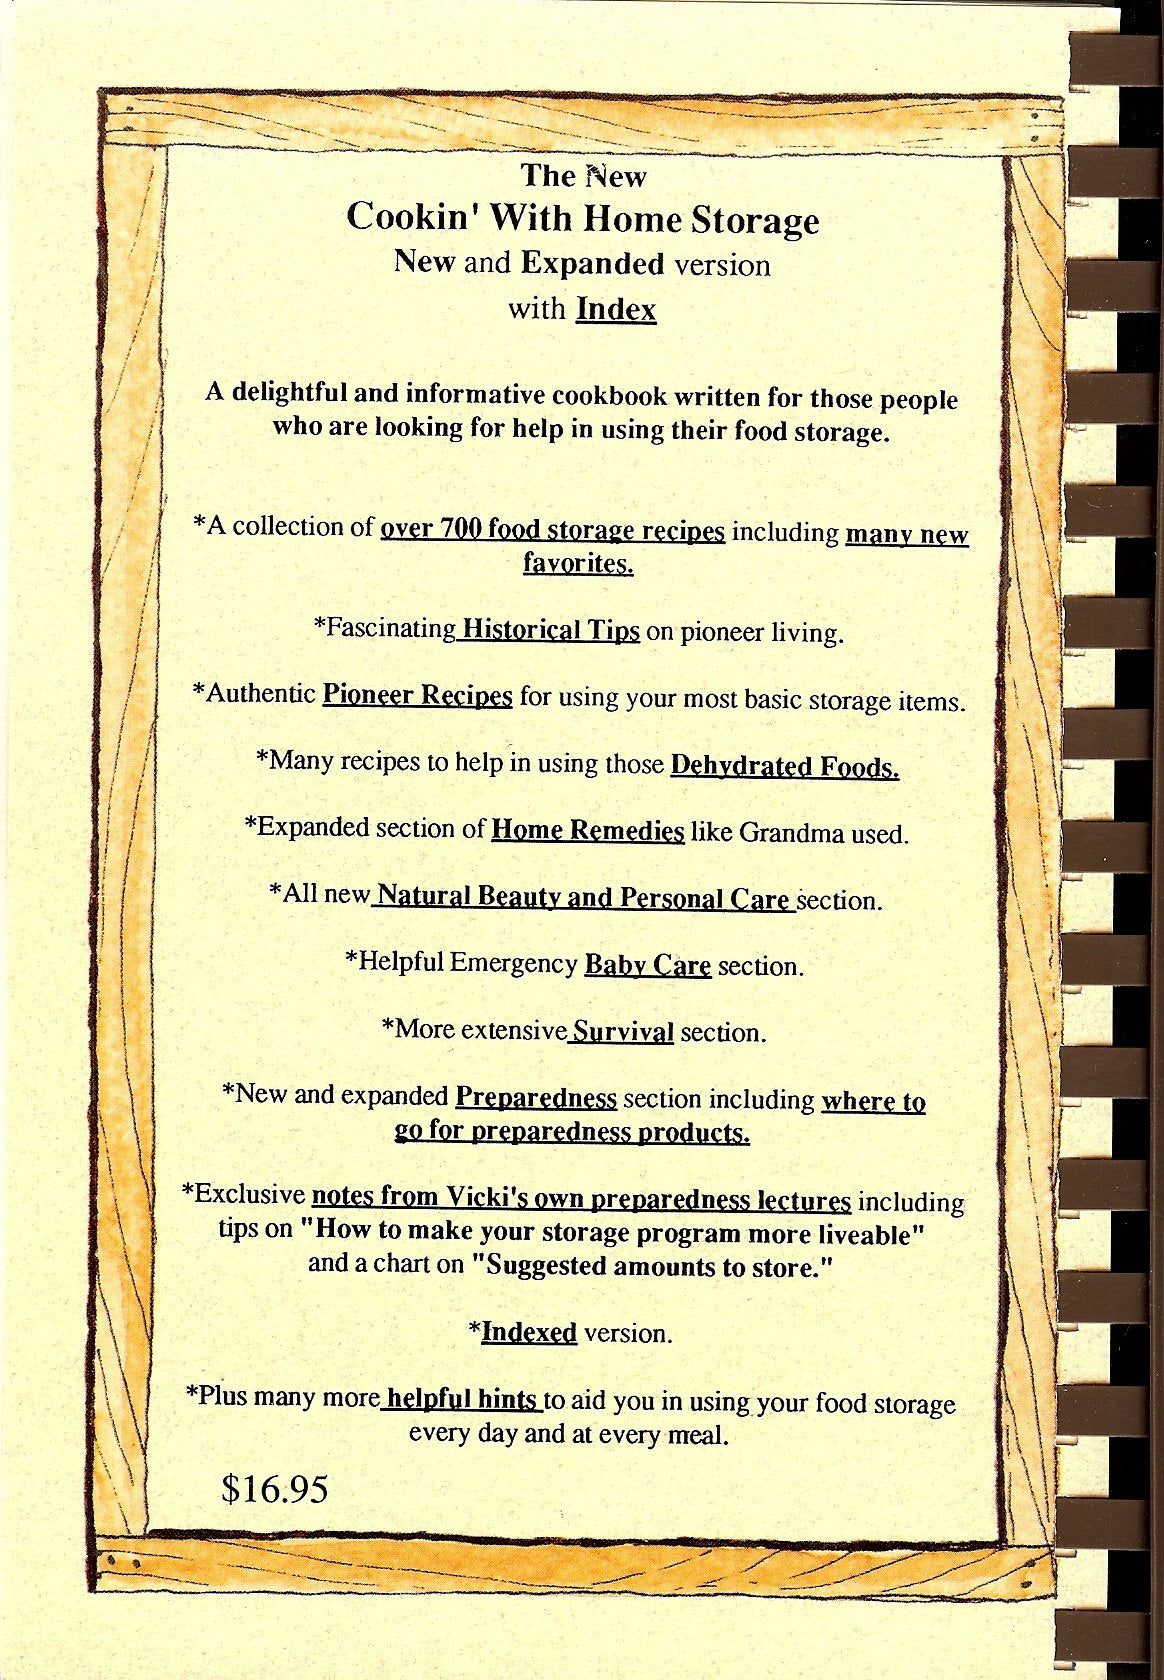 The New
Cookin' With Home Storage
New and Expanded version
with Index
A delightful and informative cookbook written for those people
who are looking for help in using their food storage.
*A collection of over 700 food storage recipes including many new
favorites.
*Fascinating Historical Tips on pioneer living.
*Authentic Pioneer Recipes for using your most basic storage items.
*Many recipes to help in using those Dehydrated Foods.
*Expanded section of Home Remedies like Grandma used.
*All new Natural Beauty and Personal Care section.
*Helpful Emergency Baby Care section.
*More extensive Survival section.
*New and expanded Preparedness section including where to
go for preparedness products.
*Exclusive notes from Vicki's own preparedness lectures including
tips on "How to make your storage program more liveable"
and a chart on "Suggested amounts to store."
*Indexed version.
*Plus many more helpful hints to aid you in using your food storage
every day and at every meal.
$16.95